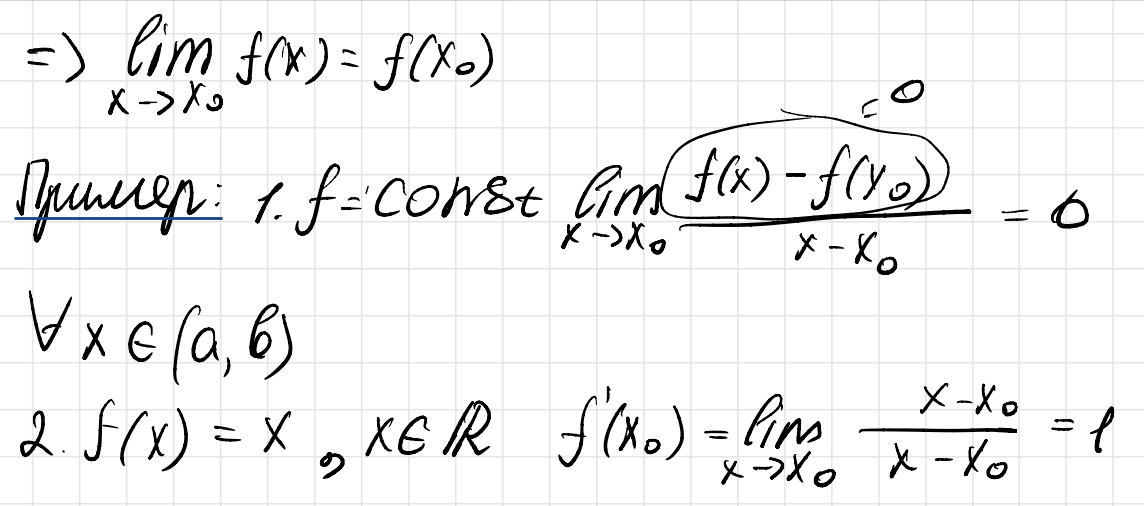 => lim f(x) = f(x₀)
x→x₀
= 0
Пример: 1. f = const lim (f(x) - f(x₀))/(x - x₀) = 0
x→x₀
∀ x ∈ (a, b)
2. f(x) = x, x ∈ ℝ f'(x₀) = lim (x - x₀)/(x - x₀) = 1
x→x₀